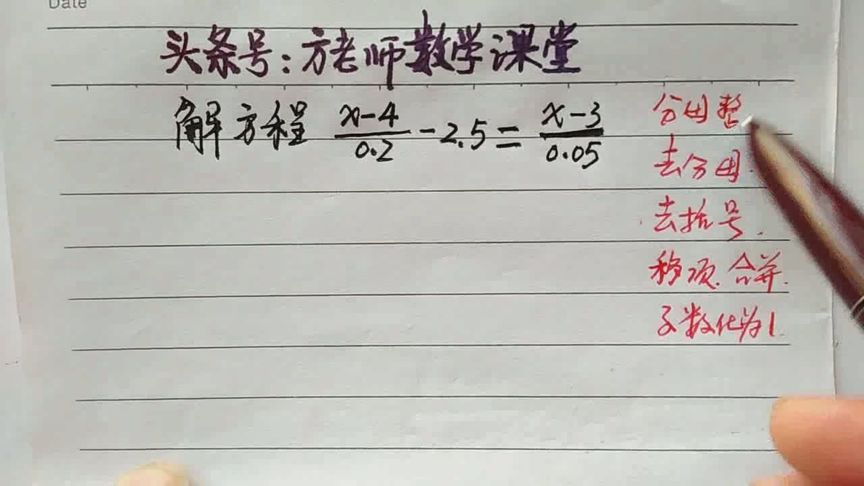 Date
头条号:方老师数学课堂
解方程 (x-4)/0.2 - 2.5 = (x-3)/0.05
分母整
去分母.
去括号.
移项.合并.
系数化为1.